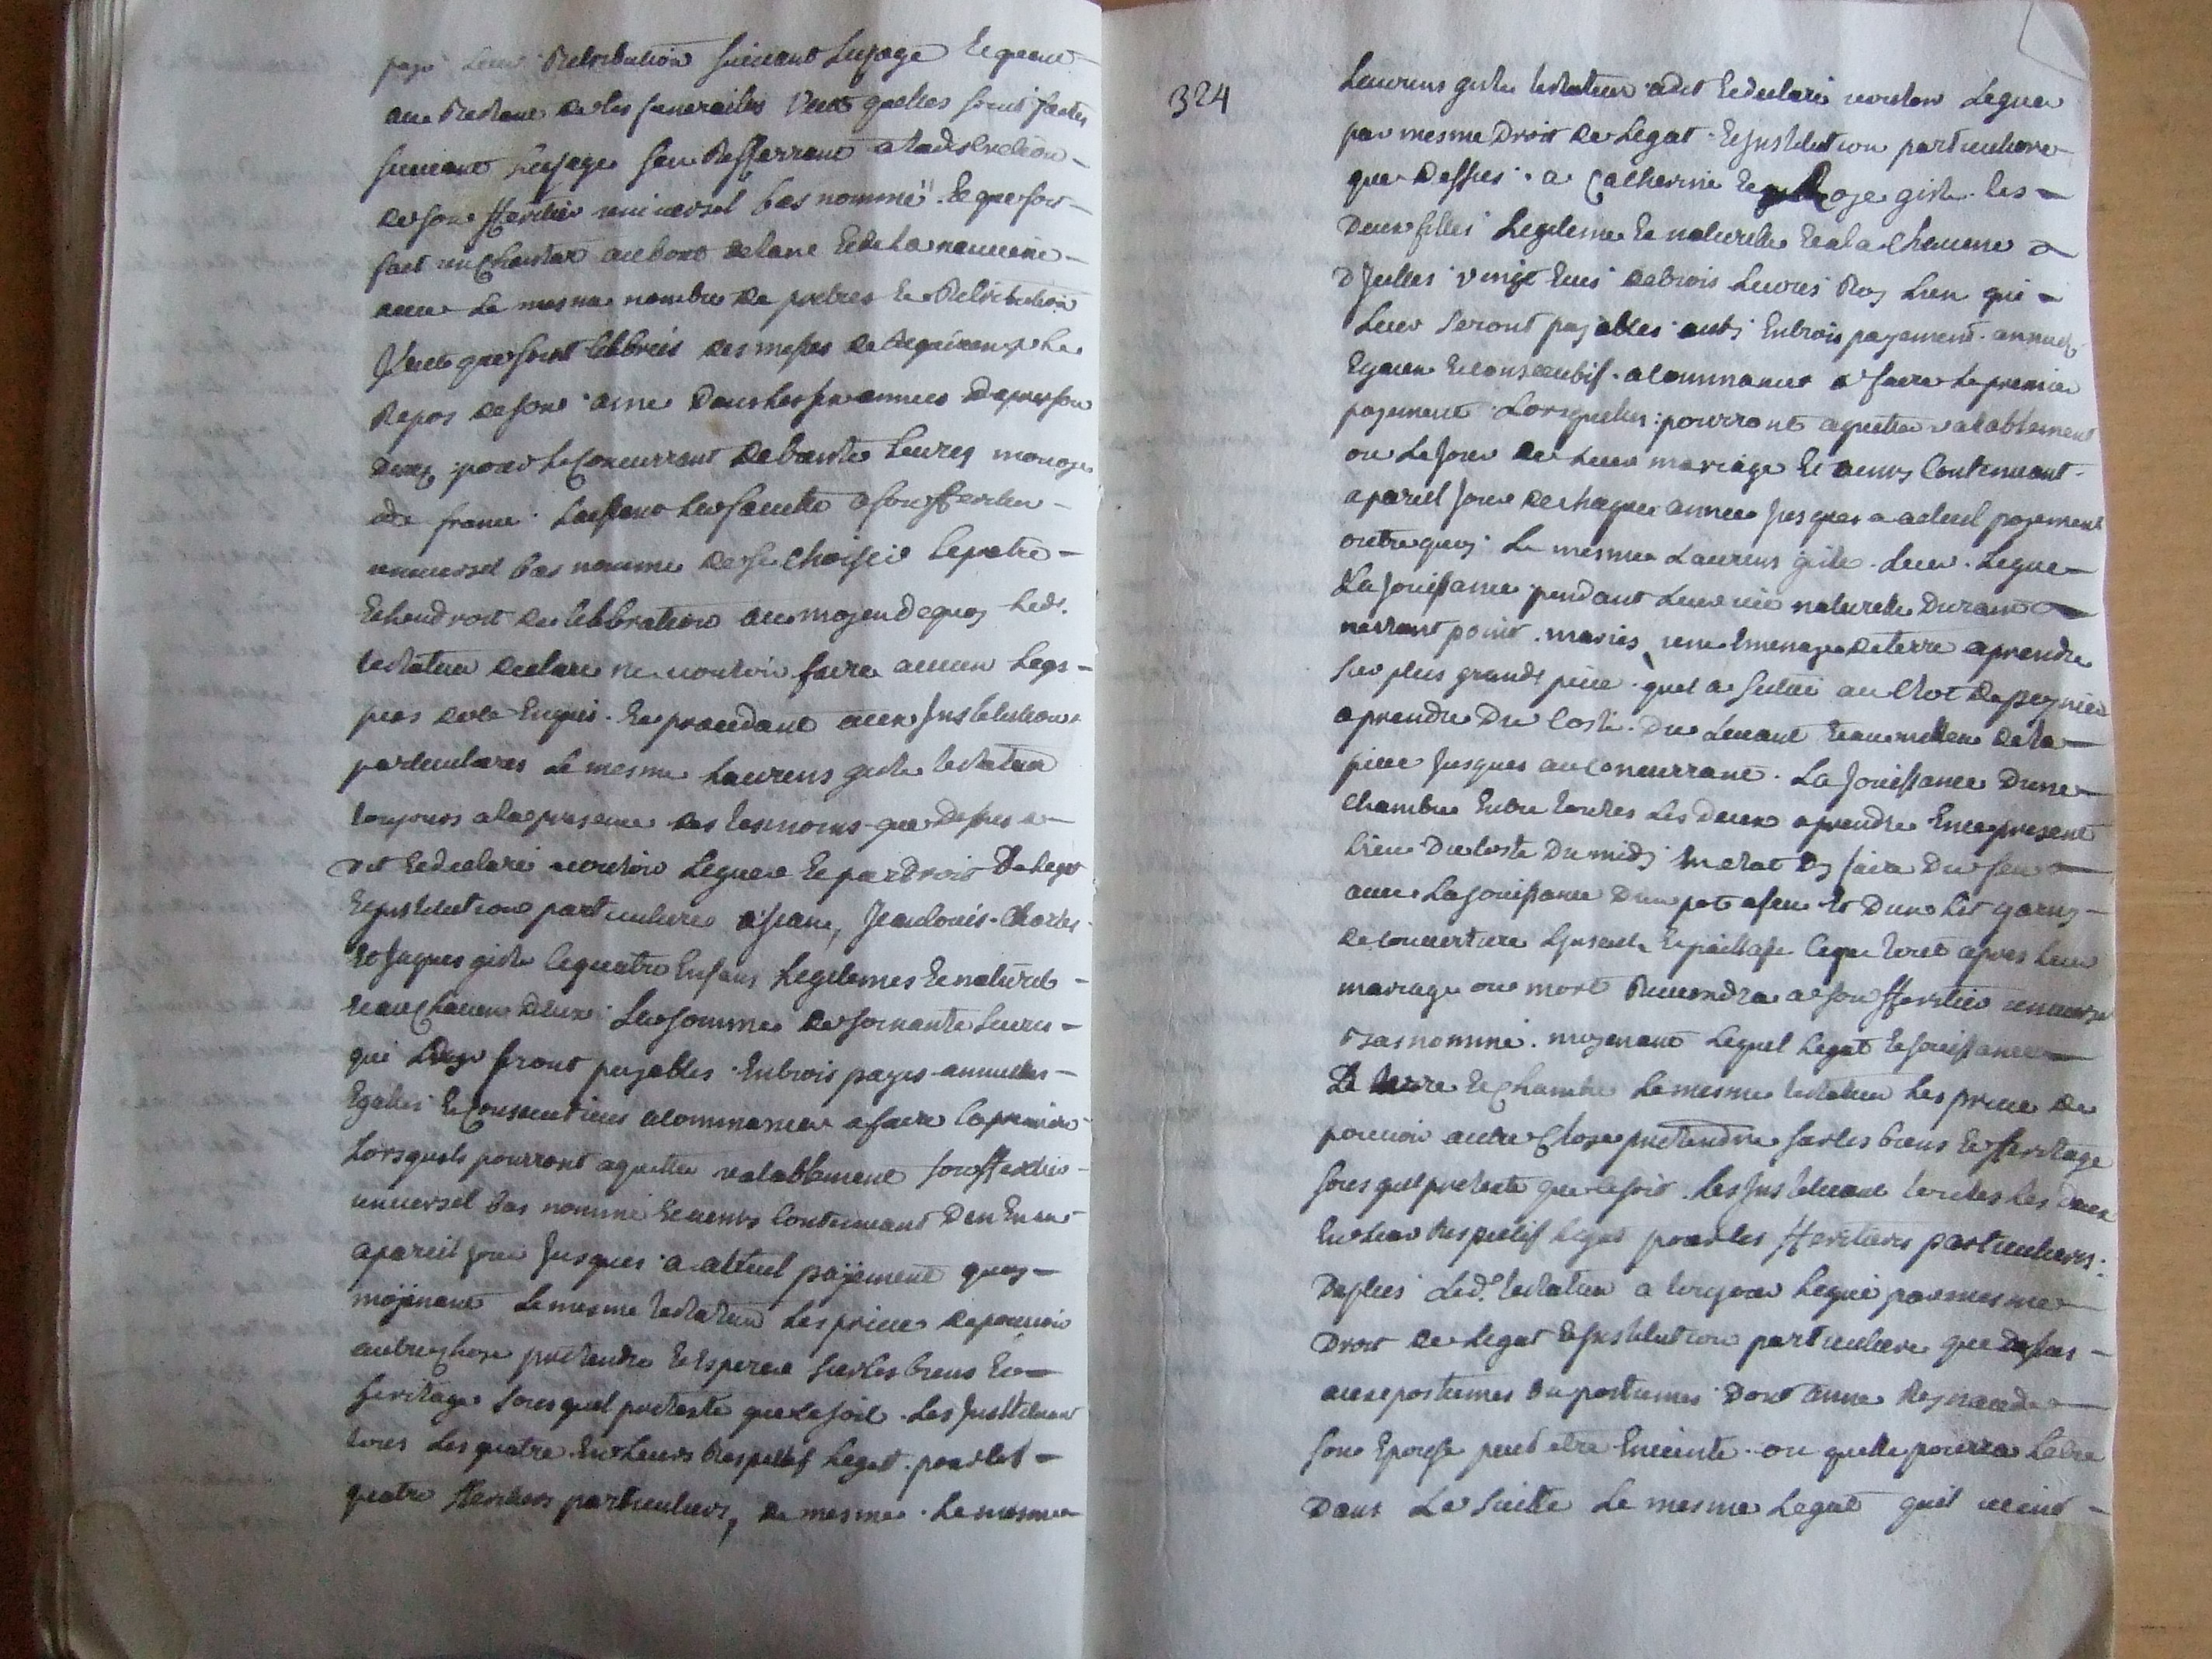 payé leur Retribution suivant lusage Et quand
au Restant de ses funerailles Veut quelles soint faites
suivant lusage sen Refferrant a la discretion
de son Heritier universel bas nommé Et que soit
fait un Chantar au bout de lane Et de la neuvene
avec le mesme nombre de pretres Et Retribution
Veut que soint cellebrées des messes de Requiem p le
Repos de son ame dans les six années dapres son
deces pour le Concurrant de trante livres monoye
de france laissant la faculté a son Heritier
universel bas nommé de se choisir le pretre
Et landroit de cellebration au moyen de quoy led.
testateur declare ne vouloir faire aucun legs
pies de ce Enquis Et procedant aux Institutions
particulieres le mesme Laurens giste testateur
toujours a la presence des tesmoins que dessus a
dit Et declaré vouloir leguer Et par droit de legat
Et Institution particuliere a Jean, Jean Louis Charles
Et Jaques giste ces quatre Enfans legitemes Et naturels
Et au chacun deux la somme de soixante livres
qui leur seront payables En trois payes annuelles
Egalles Et Consecutives a commancer a faire la premiere
lorsquils pourront aquitter valablement son Heritier
universel bas nommé Et aensy Continuant dan En an
a pareil jour jusques a attuel payement quoy
moyenant le mesme testateur les prive de pouvoir
autre chose pretendre Et Esperer sur ses biens Et
heritage sous quel pretexte que ce soit les Instituant
tous les quatre En leurs Respettif legat pour ses
quatre Heritiers particuliers, de mesme le mesme
324
Laurens giste testateur a dit Et declaré vouloir leguer
par mesme droit de legat Et Institution particuliere
que dessus a Catherine Et Roze giste ses
deux filles legitemes Et naturelles Et a la Chacune
dIcelles vingt huis de trois livres Roy lun qui
leur seront payables aussy En trois payement annuels
Egaux Et consecutifs a commancer a faire le premier
payement lorsquelles pourront aquitter valablement
ou le jour de leur mariage Et aensy Continuant
a pareil jour de chaque année jusques a actuel payement
outre quoy le mesme Laurens giste leur legue
la jouissance pendant leur vie naturelle durant
nestant point mariés une Eminage de terre a prendre
sur plus grande piece quel a scitué au Clot de peynier
a prendre du costé du levant Et au mitten de la
piece jusques au concurrant la jouissance dune
chambre Entre toutes les deux a prendre En ce present
lieu du costé du midy En Etat dy faire du feu
avec la jouissance dun pot a feu Et dun lit garny
de couverture linseuls Et paillasse ce que tout apres leur
mariage ou mort Reviendra a son Heritier universel
bas nommé moyenant lequel legat Et jouissance
de terre Et chambre le mesme testateur les prive de
pouvoir autre Chose pretendre sur ses biens Et Heritage
sous quel pretexte que ce soit les Instituant toutes les deux
En leur Respettif legat pour ses Heritieres particulieres:
de plus led. testateur a toujour legué par mesme
droit de legat Et Institution particuliere que dessus
aux postumes ou postumes dont Anne Reynaude
son Epouse peut etre Enceinte ou quelle pourra letre
dans la suitte le mesme legat quil vient